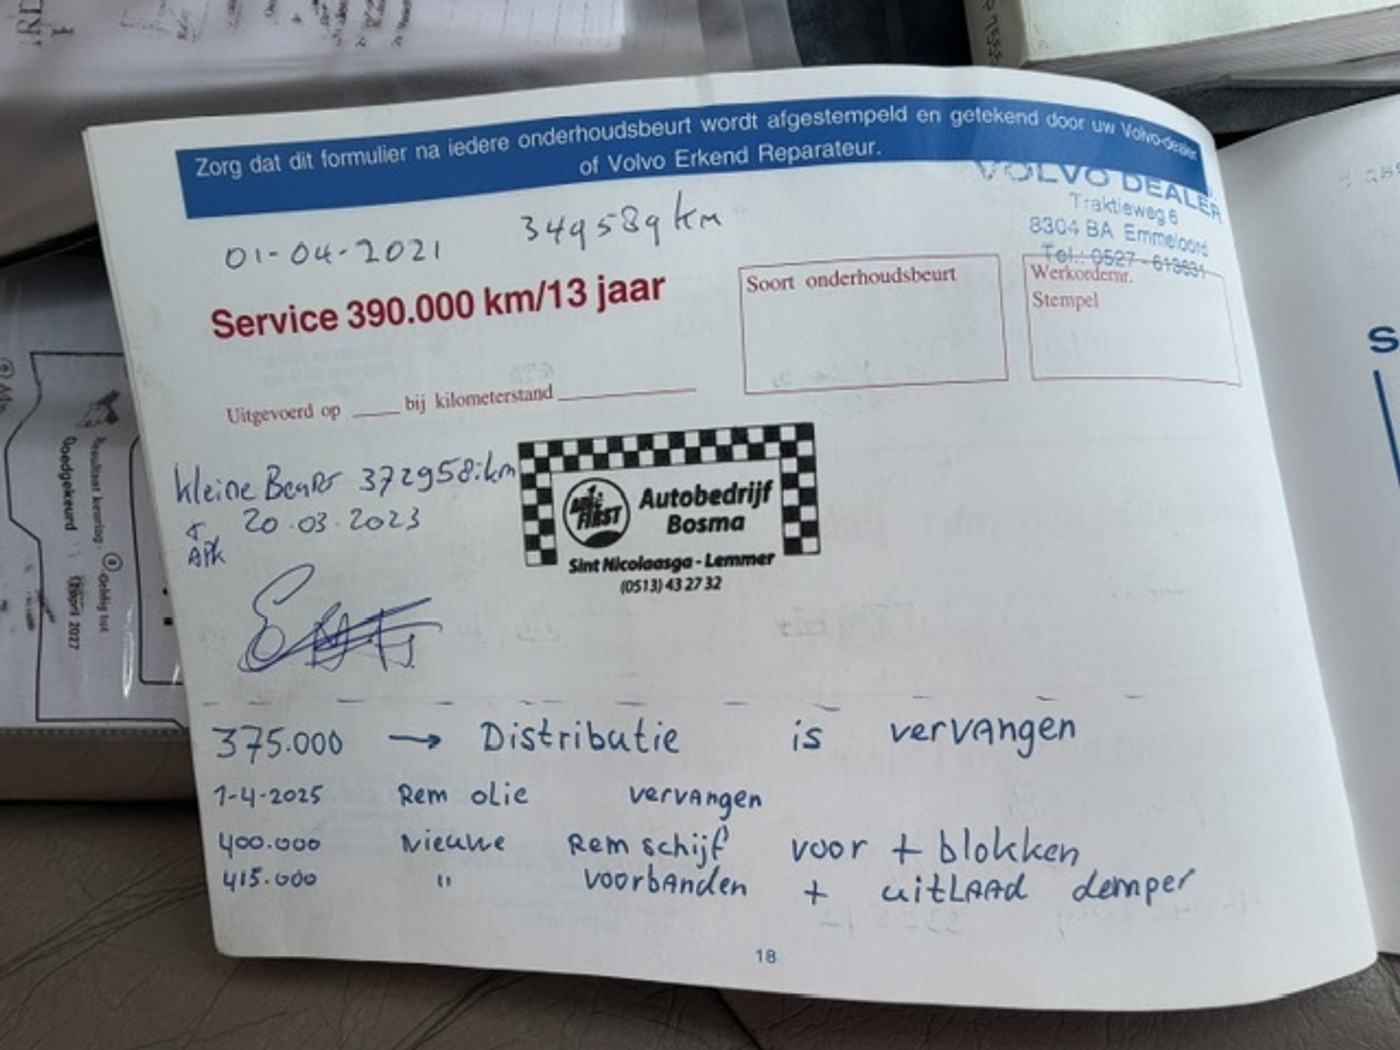 Zorg dat dit formulier na iedere onderhoudsbeurt wordt afgestempeld en getekend door uw Volvo-dealer
of Volvo Erkend Reparateur.
VOLVO DEALER
Traktieweg 6
8304 BA Emmeloord
Tel.: 0527 - 613631
01-04-2021 349589 km
Service 390.000 km/13 jaar
Soort onderhoudsbeurt
Werkordernr.
Stempel
Uitgevoerd op ____ bij kilometerstand ____
kleine Beurt 372958 km
+ 20-03-2023
APK
Autobedrijf
Bosma
Sint Nicolaasga - Lemmer
(0513) 43 27 32
375.000 → Distributie is vervangen
1-4-2025 Rem olie vervangen
400.000 Nieuwe Rem schijf voor + blokken
415.000 " voorbanden + uitLAAD demper
18
Resultaat keuring:
Goedgekeurd
Geldig tot
april 2027